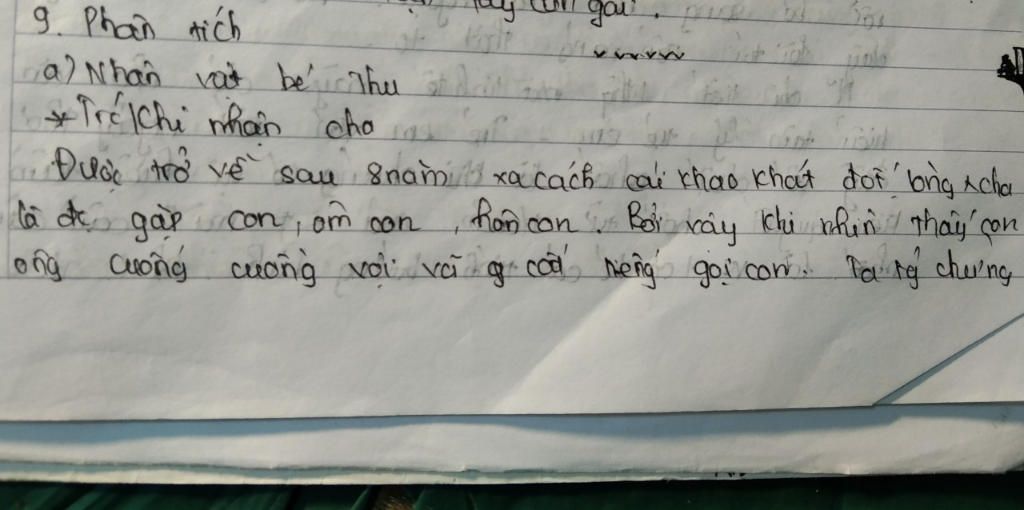 tay con gái.
9. Phân tích
a) Nhân vật bé Thu
* Trc khi nhận cha
Được trở về sau 8 năm xa cách cái khao khát đời lòng cha
là đc gặp con, ôm con, hôn con. Bởi vậy khi nhìn thấy con
ông cuống cuồng vội vã g cất tiếng gọi con. Ta ngỡ chừng